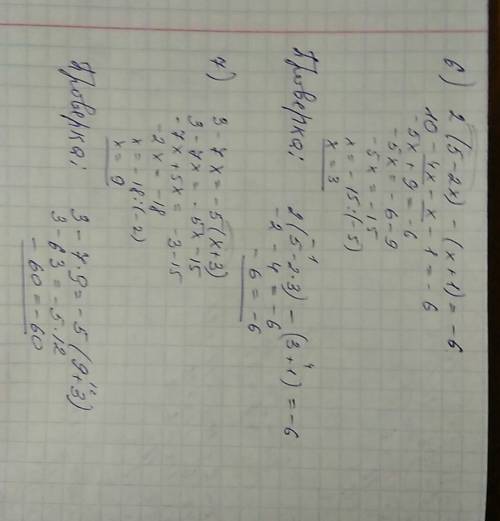 6) 2(5-2x) - (x+1) = -6
10 - 4x - x - 1 = -6
-5x + 9 = -6
-5x = -6-9
-5x = -15
x = -15:(-5)
x = 3
Проверка:
2(5-2·3) - (3+1) = -6
-1 4
-2 - 4 = -6
-6 = -6
7) 3 - 7x = -5(x+3)
3 - 7x = -5x - 15
-7x + 5x = -3-15
-2x = -18
x = -18:(-2)
x = 9
Проверка:
3 - 7·9 = -5(9+3)
12
3 - 63 = -5·12
-60 = -60